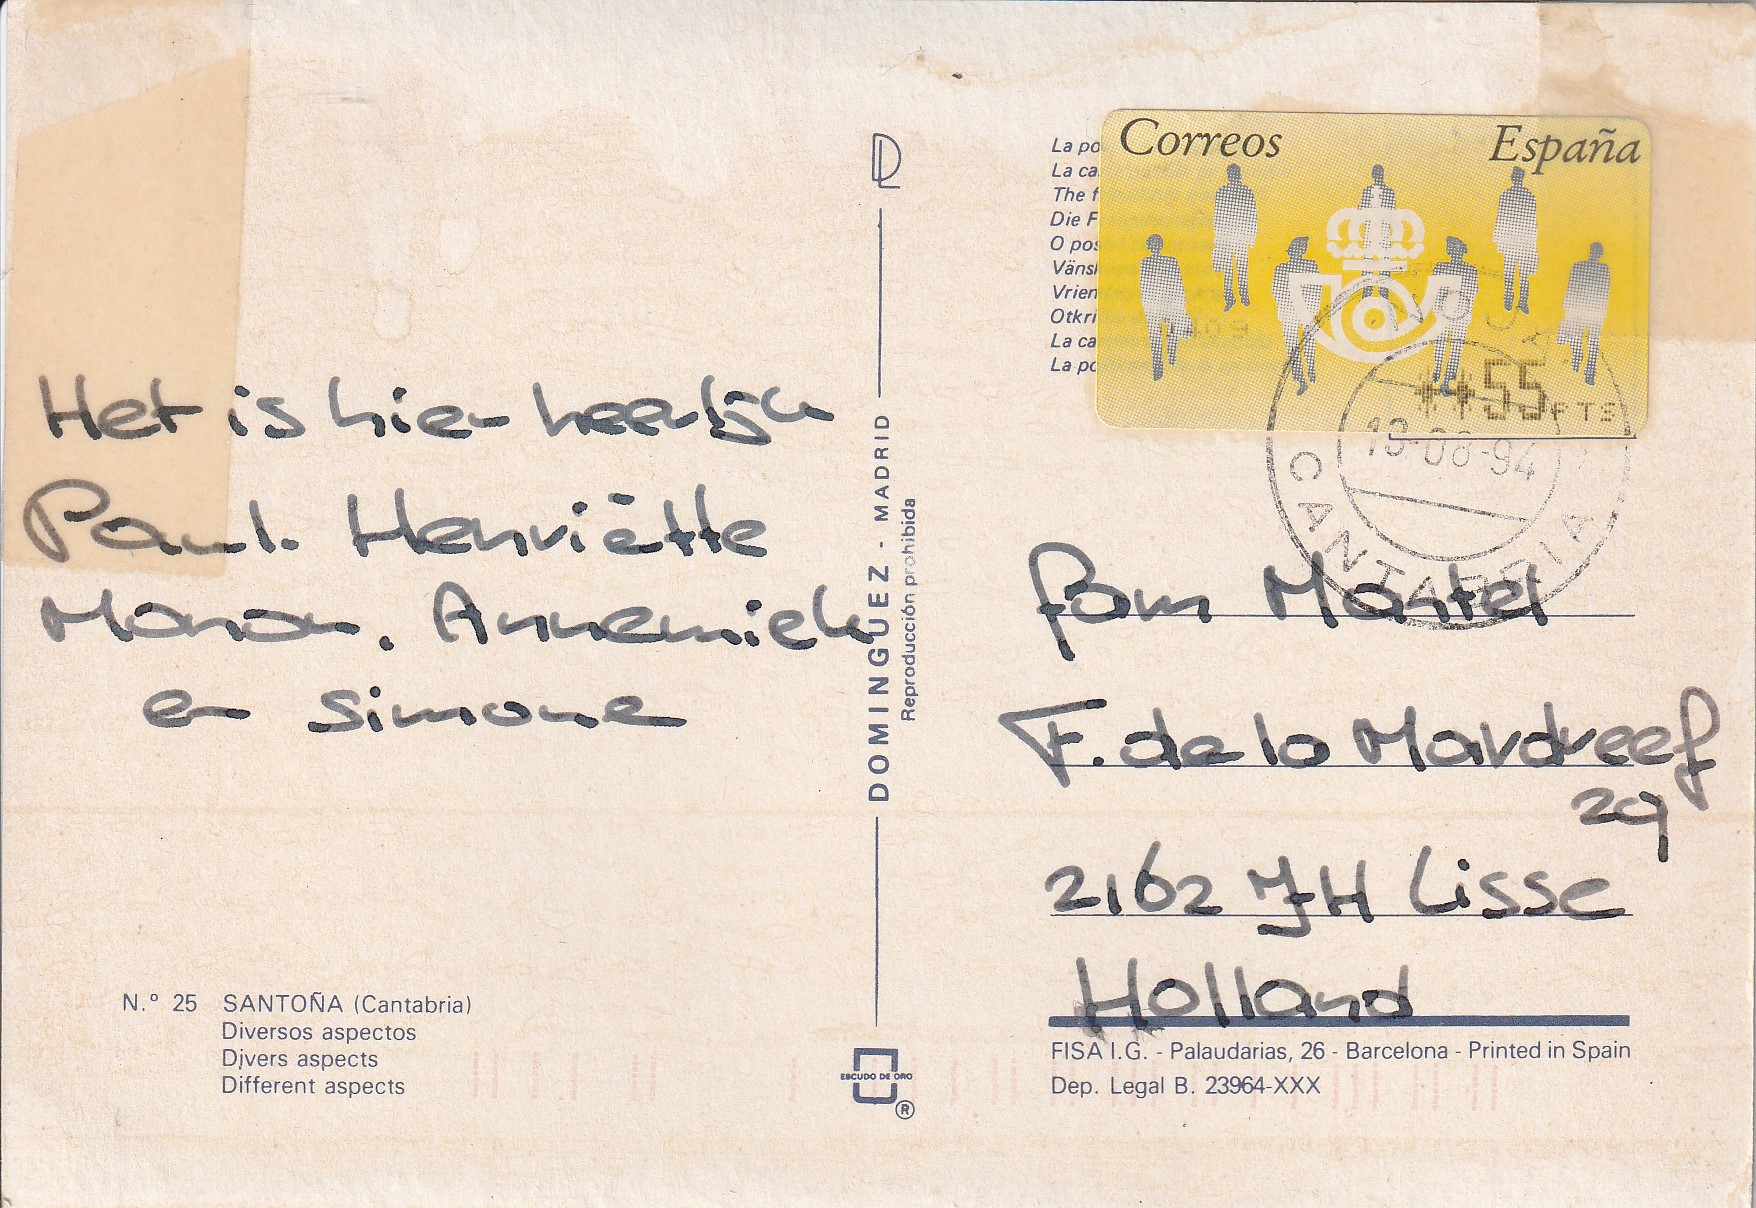 Het is hier heerlijk
Paul. Henriëtte
Manon. Annemiek
en Simone
N.º 25 SANTOÑA (Cantabria)
Diversos aspectos
Divers aspects
Different aspects
DOMINGUEZ - MADRID
Reproducción prohibida
ESCUDO DE ORO
®
La po
La ca
The f
Die F
O pos
Vänsk
Vrien
Otkri
La ca
La po
Correos España
**55 PTS
13-08-94
CANTABRIA
Fam Mantel
F. de la Mardreef
29
2162 JH Lisse
Holland
FISA I.G. - Palaudarias, 26 - Barcelona - Printed in Spain
Dep. Legal B. 23964-XXX